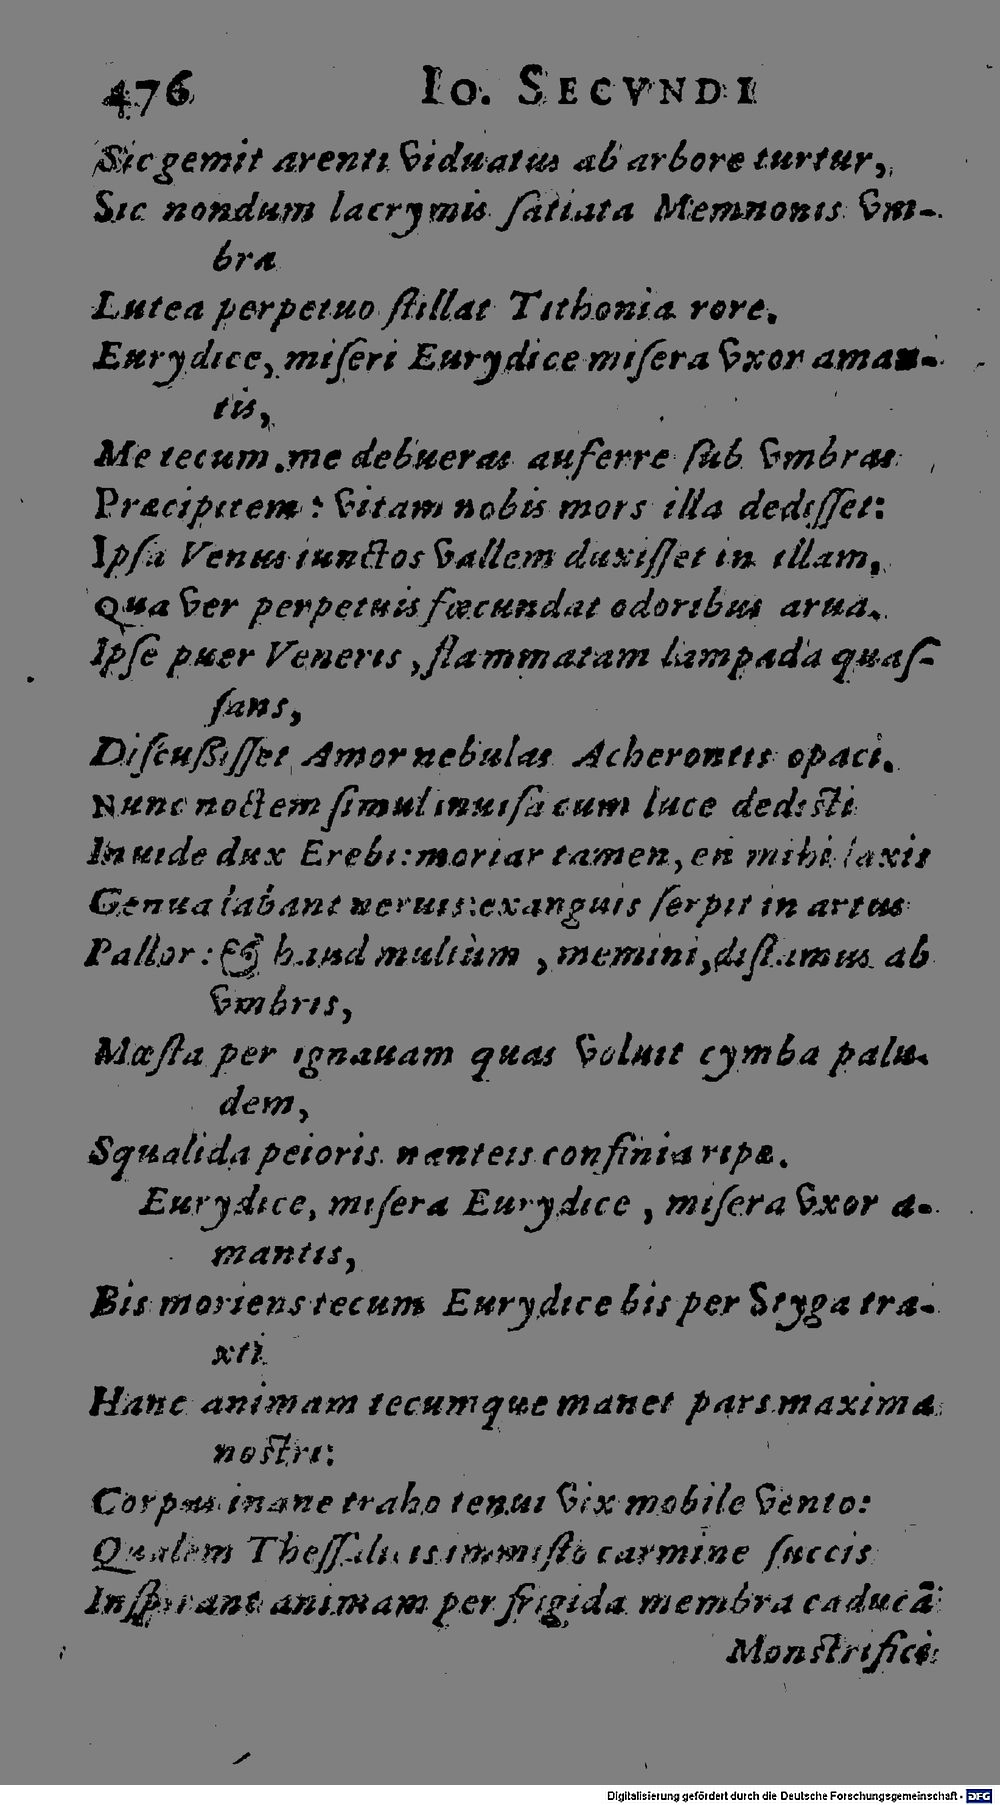 476 Io. SECVNDI
Sic gemit arenti viduatus ab arbore turtur,
Sic nondum lacrymis ſatiata Memnonis vm-
bra
Lutea perpetuo ſtillat Tithonia rore.
Eurydice, miſeri Eurydice miſera vxor aman-
tis,
Me tecum, me debueras auferre ſub vmbras
Præcipitem: vitam nobis mors illa dediſſet:
Ipſa Venus iunctos vallem duxiſſet in illam,
Qua ver perpetuis fœcundat odoribus arua.
Ipſe puer Veneris, flammatam lampada quaſ-
ſans,
Diſcußiſſet Amor nebulas Acherontis opaci.
Nunc noctem ſimul inuiſa cum luce dediſti
Inuide dux Erebi: moriar tamen, en mihi laxis
Genua labant neruis: exanguis ſerpit in artus
Pallor: & haud multùm, memini, diſtamus ab
vmbris,
Mœſta per ignauam quas voluit cymba palu-
dem,
Squalida peioris nanteis confinia ripæ.
Eurydice, miſera Eurydice, miſera vxor a-
mantis,
Bis moriens tecum Eurydice bis per Styga tra-
xti
Hanc animam tecumque manet pars maxima
noſtri:
Corpus inane traho tenui vix mobile vento:
Qualem Theſſalicis immiſto carmine ſuccis
Inſpirant animam per frigida membra caducā
Monſtrifici
Digitalisierung gefördert durch die Deutsche Forschungsgemeinschaft - DFG